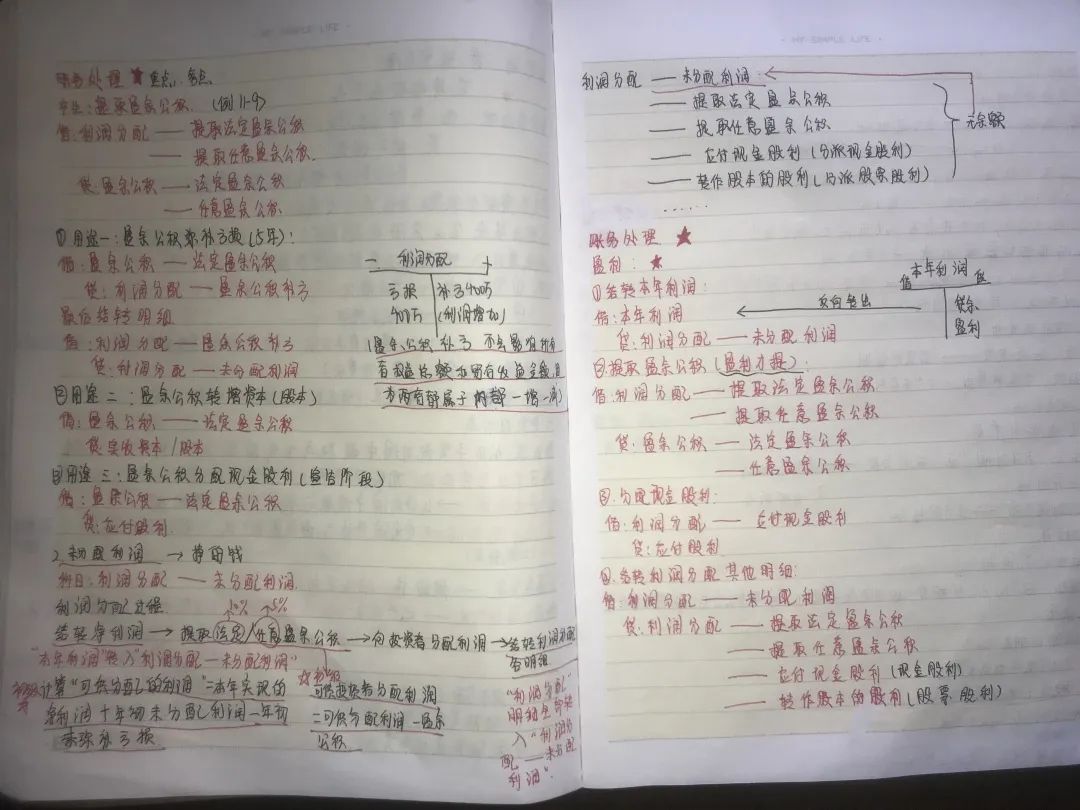 MY SIMPLE LIFE
账务处理 ★ 重点、考点
产生:提取盈余公积. (例11-9)
借:利润分配 —— 提取法定盈余公积
—— 提取任意盈余公积.
贷:盈余公积 —— 法定盈余公积
—— 任意盈余公积.
①用途一:盈余公积弥补亏损(5年):
借:盈余公积 —— 法定盈余公积
贷:利润分配 —— 盈余公积补亏
最后结转明细
借:利润分配 —— 盈余公积补亏
贷:利润分配 —— 未分配利润
- 利润分配 +
亏损 补亏400万
400万 (利润增加)
盈余公积补亏不会影响所有
②用途二:盈余公积转增资本(股本)
借:盈余公积 —— 法定盈余公积
贷:实收资本/股本
③用途三:盈余公积分配现金股利(宣告阶段)
借:盈余公积 —— 法定盈余公积
贷:应付股利.
2.未分配利润 → 挣的钱
科目:利润分配 —— 未分配利润.
利润分配过程 10% 5%
结转净利润 → 提取法定/任意盈余公积 → 向投资者分配利润 → 结转利润分配
各明细
"本年利润"转入"利润分配—未分配利润"
计算"可供分配的利润"=本年实现的
净利润+年初未分配利润-年初
未弥补亏损
可供投资者分配利润
=可供分配利润-盈余
公积
"利润分配"
明细全部转
入"利润分
配——未分配
利润".
MY SIMPLE LIFE
利润分配 —— 未分配利润
—— 提取法定盈余公积
—— 提取任意盈余公积
—— 应付现金股利(分派现金股利)
—— 转作股本的股利(分派股票股利)
......
无余额
账务处理 ★
盈利: ★
①结转本年利润:
借:本年利润
贷:利润分配 —— 未分配利润
反向转出
本年利润
借 贷
贷余
盈利
②提取盈余公积(盈利才提):
借:利润分配 —— 提取法定盈余公积
—— 提取任意盈余公积
贷:盈余公积 —— 法定盈余公积
—— 任意盈余公积
③分配现金股利:
借:利润分配 —— 应付现金股利
贷:应付股利
④结转利润分配其他明细:
借:利润分配 —— 未分配利润
贷:利润分配 —— 提取法定盈余公积
—— 提取任意盈余公积
—— 应付现金股利(现金股利)
—— 转作股本的股利(股票股利)